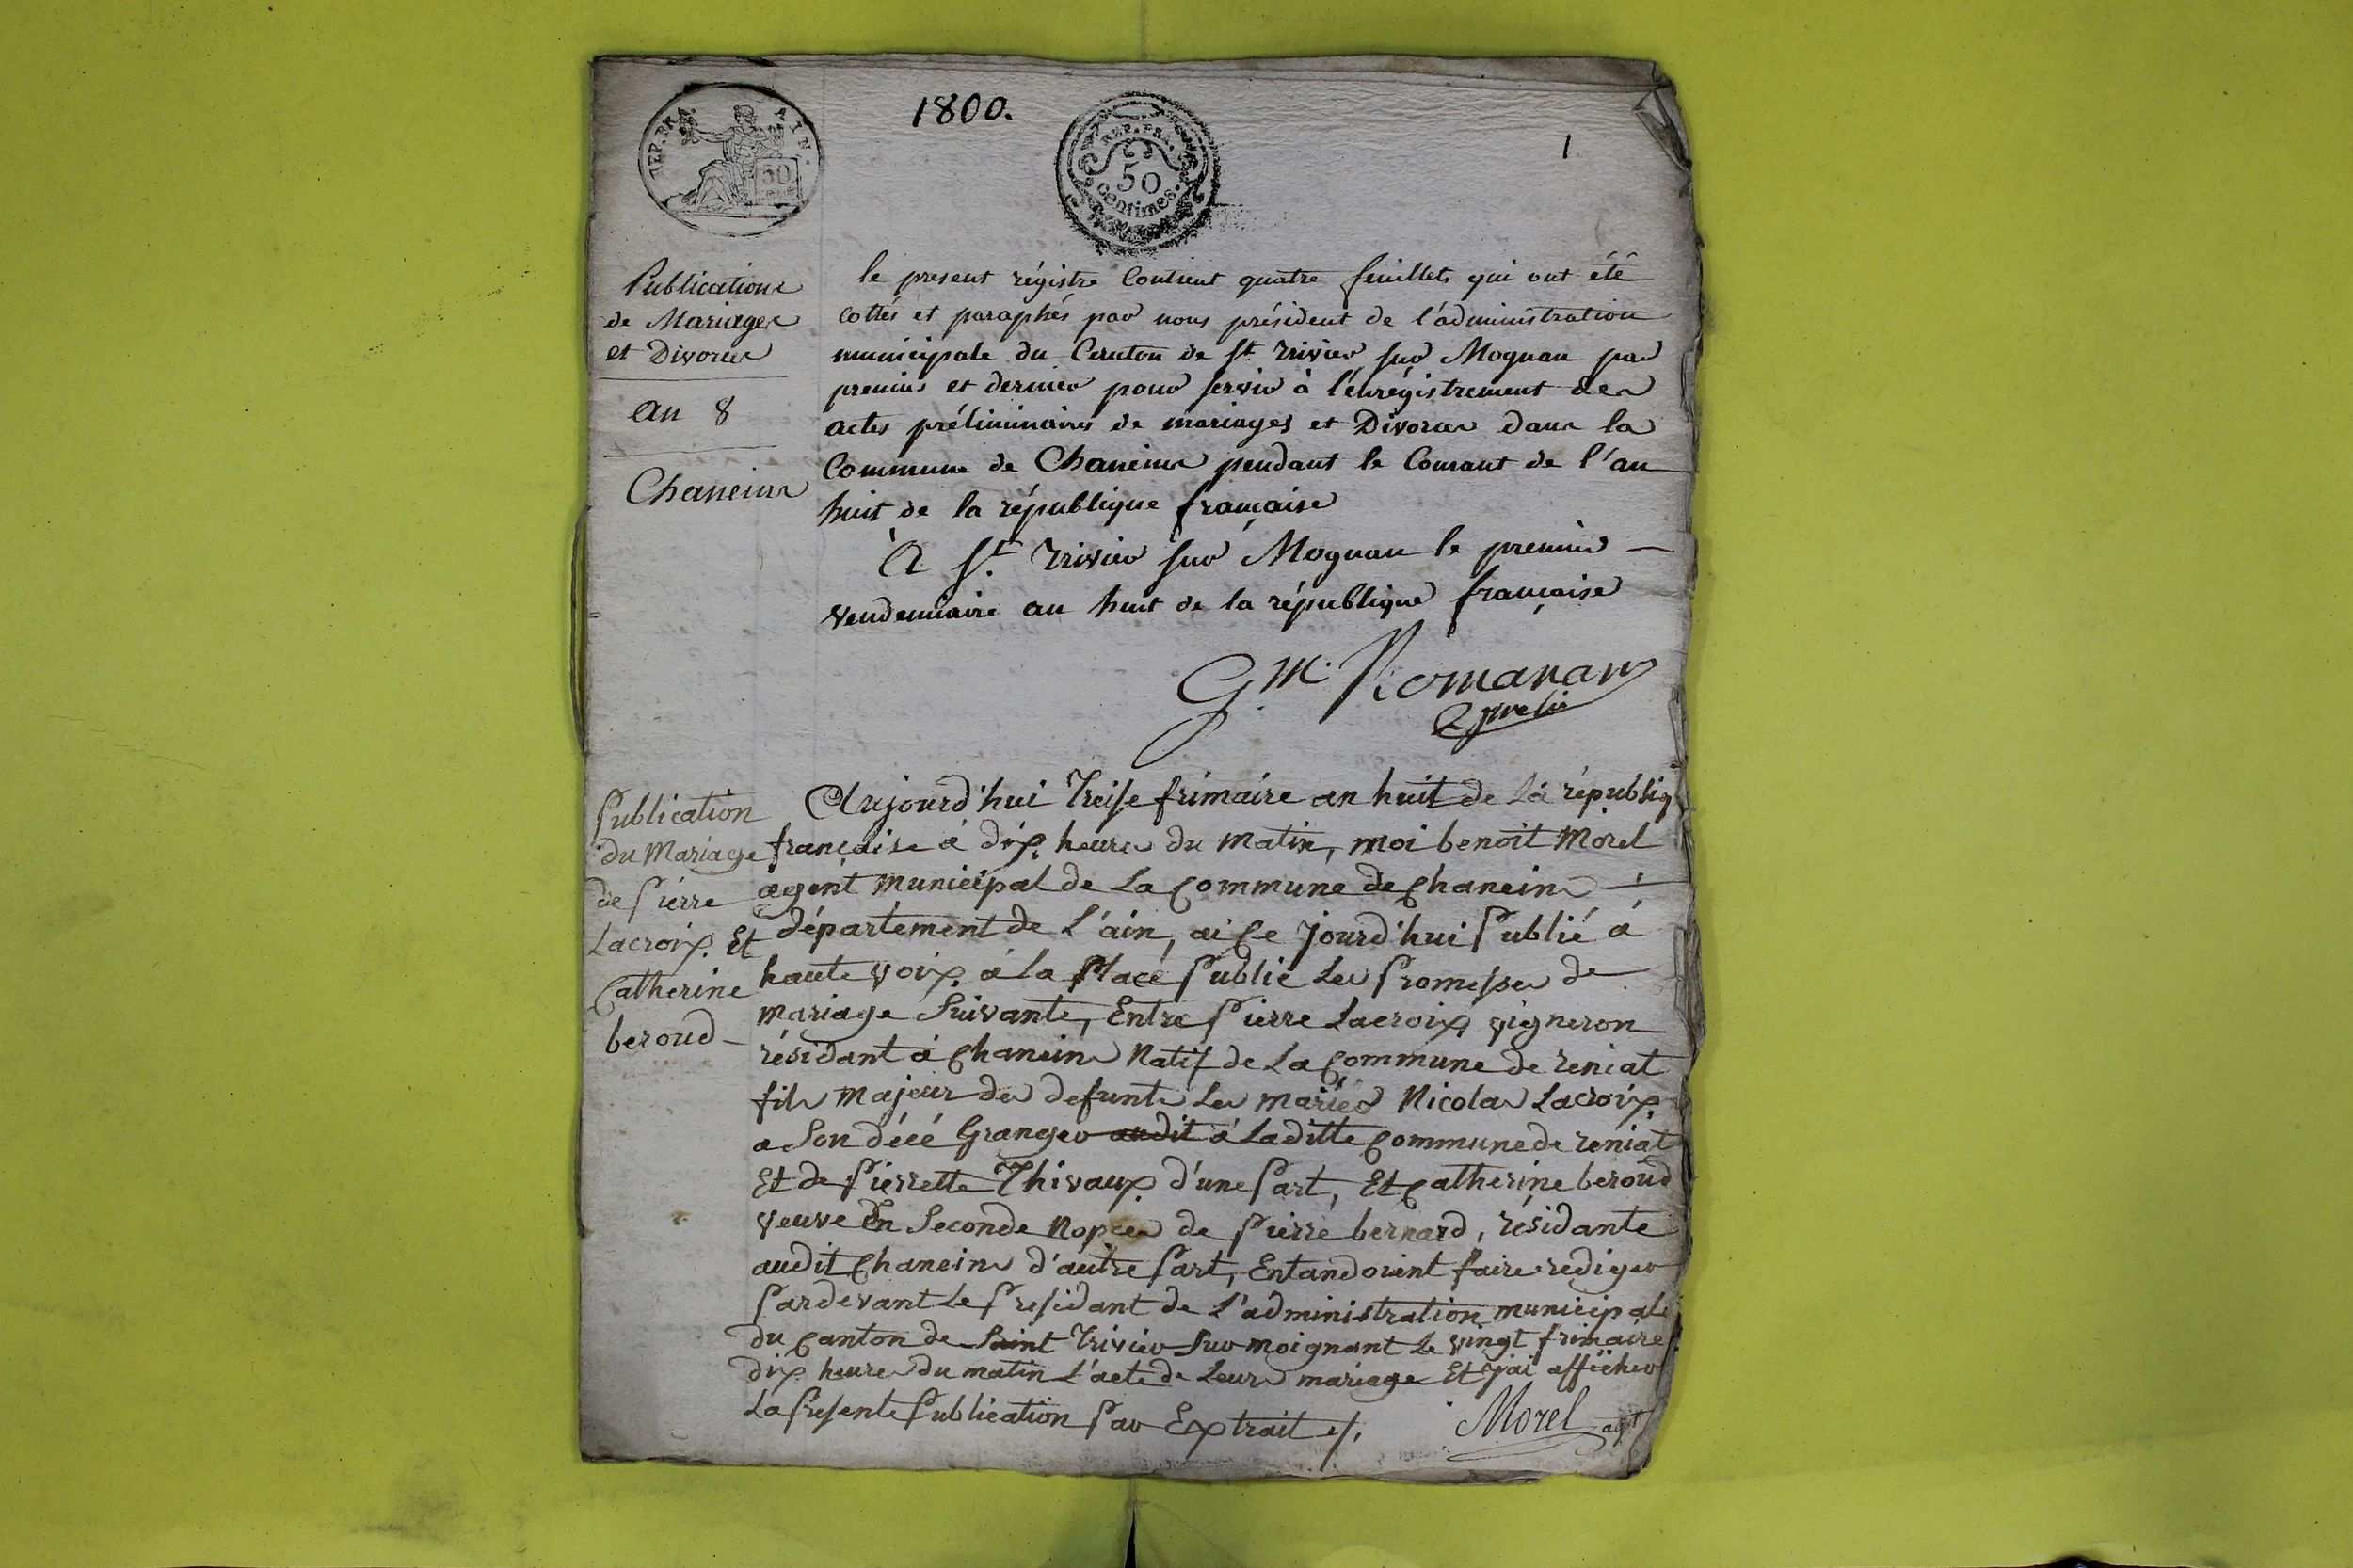 1800.
1
REP. FRA.
AIN.
50
REP. FRA.
50
centimes.
Publications
de Mariages
et Divorces
an 8
Chaneins
le present régistre Contient quatre feuillets qui ont été
cottés et paraphés par nous président de l'administration
municipale du Canton de St. Trivier sur Mognan par
premier et dernier pour servir à l'enrégistrement des
actes préliminaires de mariages et Divorces dans la
Commune de Chaneins pendant le Courant de l'an
huit de la république française
A St. Trivier sur Mognan le premier
vendemiaire an huit de la république française
G.M. Romanans
Publication
du Mariage
de Pierre
Lacroix. Et
Catherine
beroud
Aujourd'hui Treise frimaire an huit de la républiq
française à dix heures du matin, moi benoit Morel
agent municipal de La Commune de Chaneins
département de L'ain, ai Ce jourd'hui Publié à
haute voix à la Place Public Les Promesses de
mariage Suivante, Entre Pierre Lacroix vigneron
résidant à Chaneins Natif de La Commune de reniat
fils majeur des defunts Les mariés Nicolas Lacroix
a Son décé Granger audit à Laditte Commune de reniat
Et de Pierrette Thivaux d'une Part, Et Catherine beroud
veuve En Seconde Nopces de Pierre bernard, résidante
audit Chaneins d'autre Part, Entandoient faire rediger
Pardevant Le Presidant de L'administration municipale
du Canton de Saint Trivier Sur moignant Le vingt frimaire
dix heures du matin L'acte de Leurs mariage Et j'ai afficher
La Presente Publication Par Extrait
Morel agt